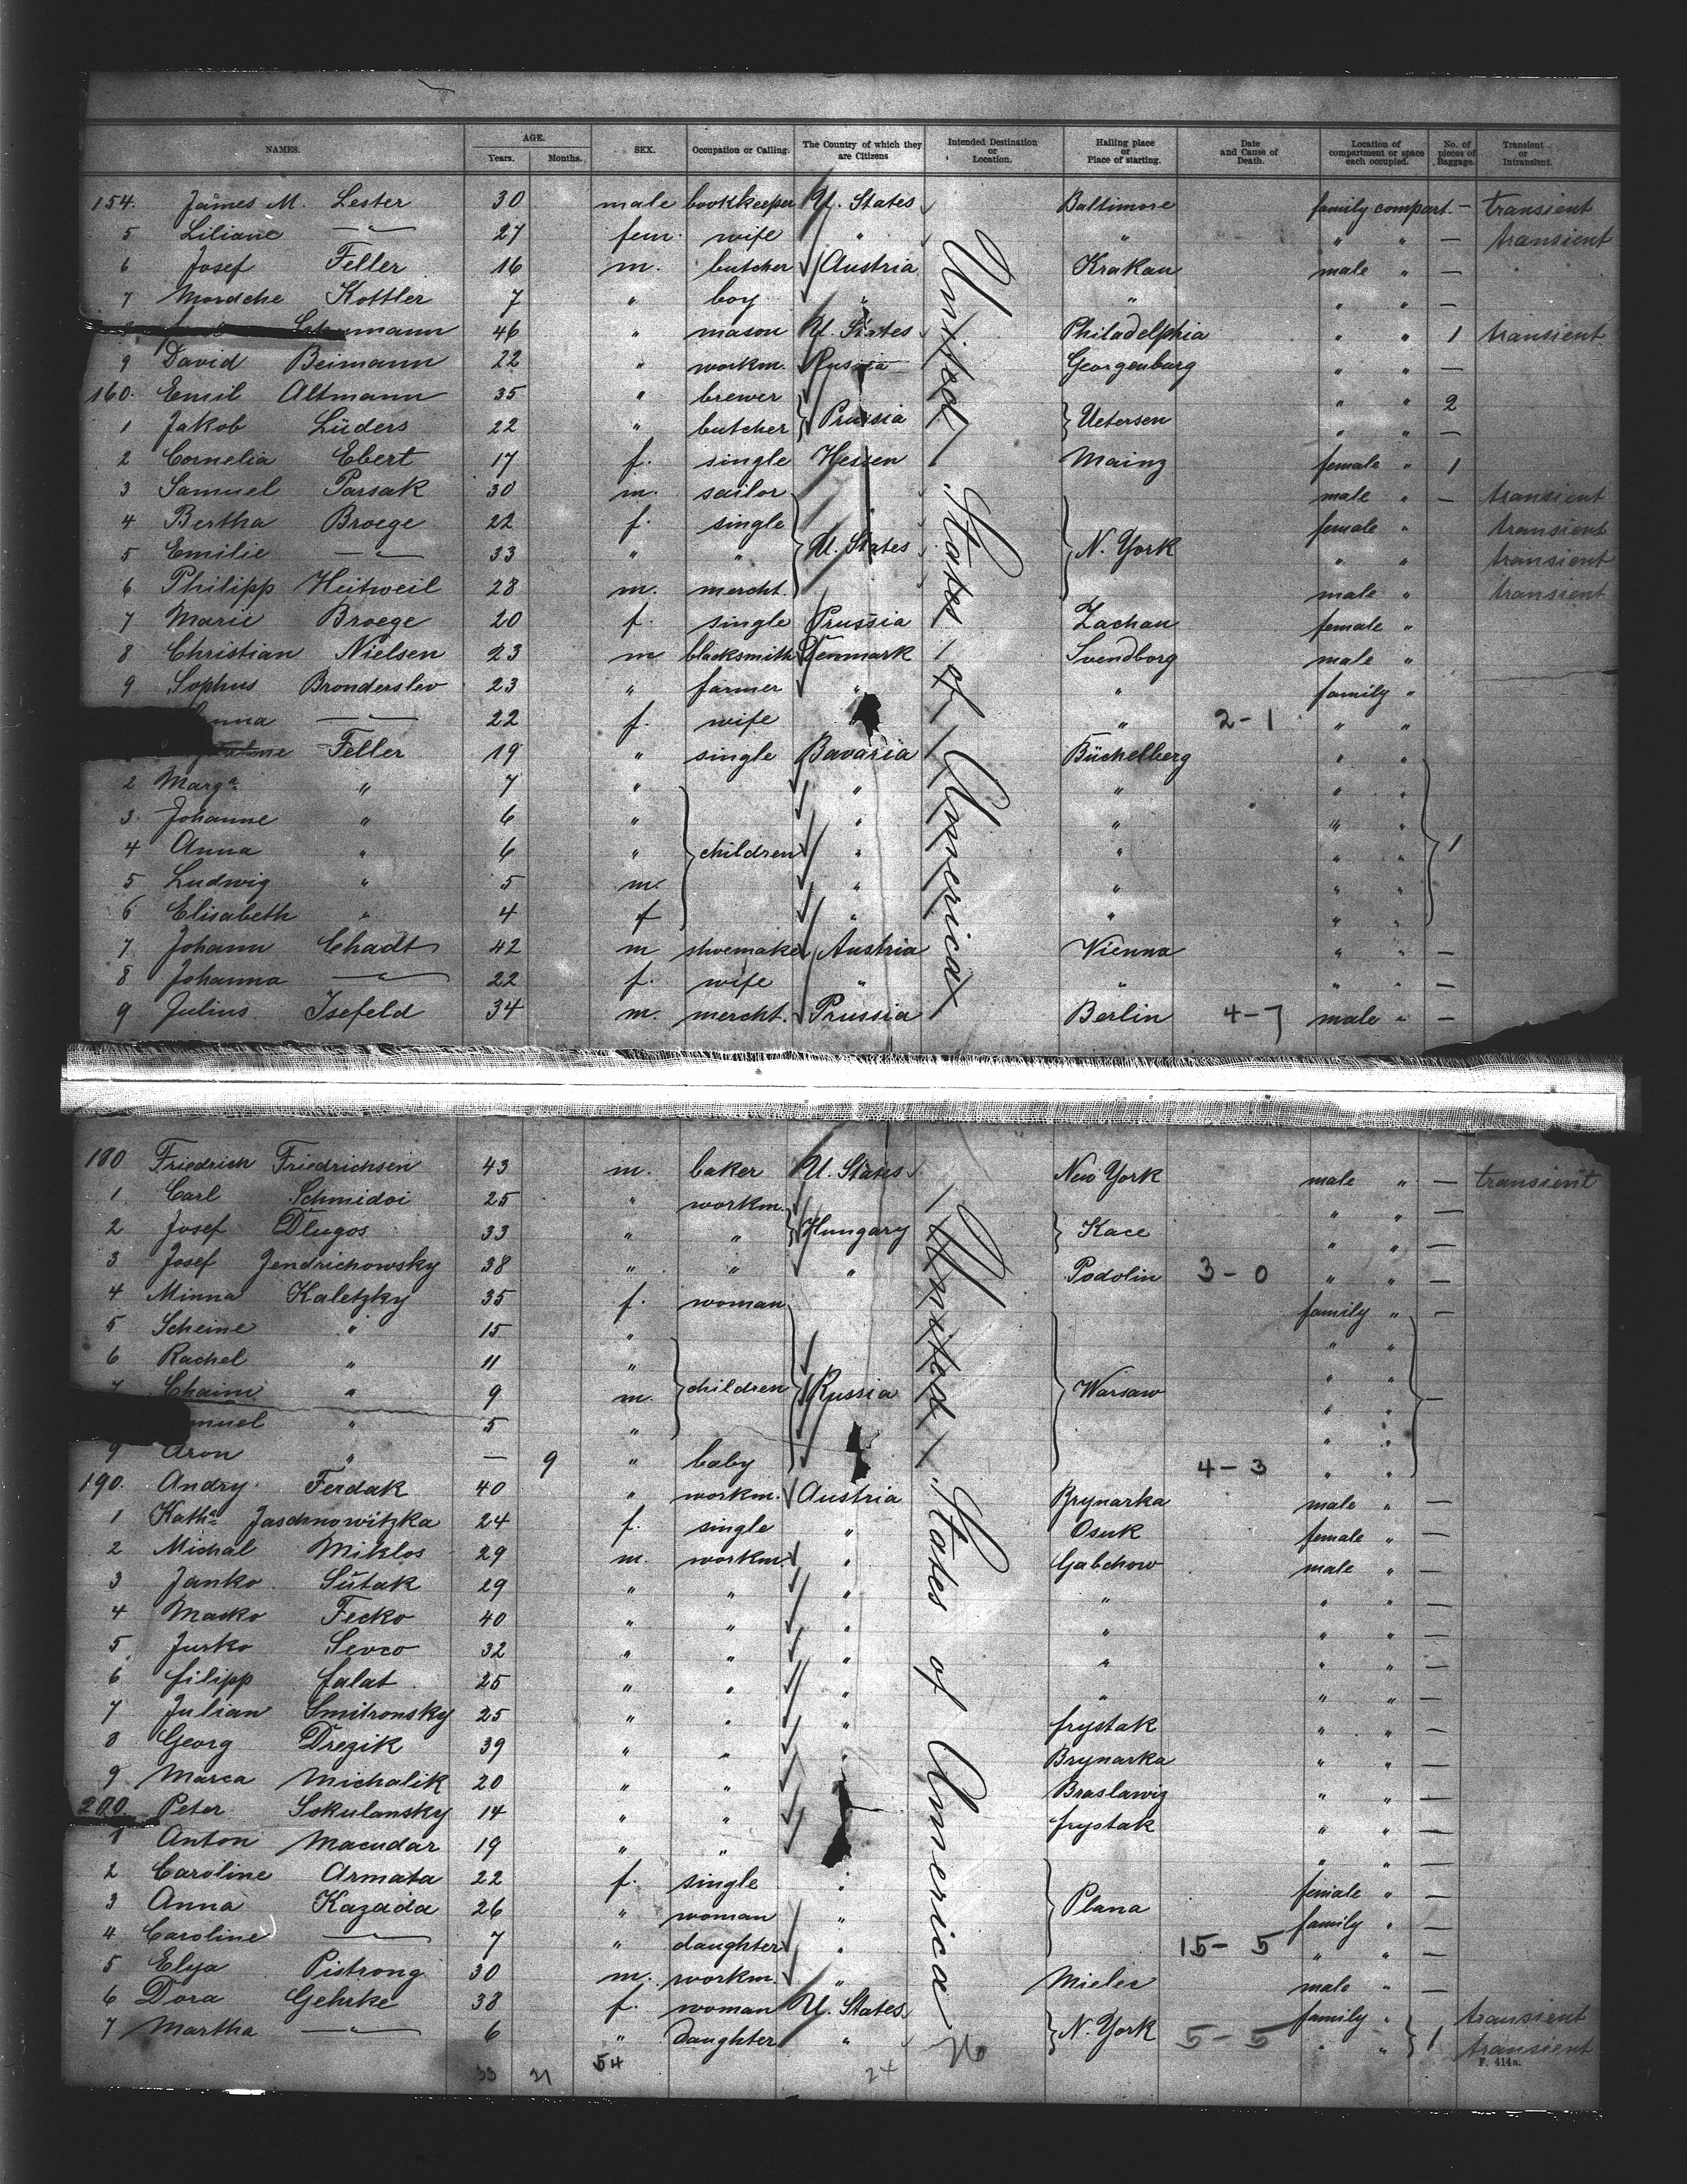 NAMES. AGE. Years. Months. SEX. Occupation or Calling. The Country of which they are Citizens Intended Destination or Location. Hailing place or Place of starting. Date and Cause of Death. Location of compartment or space each occupied. No. of pieces of Baggage. Transient or Intransient.
154. James M. Lester 30 male bookkeeper U. States Baltimore family compart. — transient
5 Liliane —"— 27 fem. wife " " " " — transient
6 Josef Feller 16 m. butcher Austria Krakau male " —
7 Mordche Kottler 7 " boy " " " " —
46 " mason U. States Philadelphia " " 1 transient
9 David Beimann 22 " workm. Russia Georgenburg " " —
160. Emil Altmann 35 " brewer " " 2
1 Jakob Lüders 22 " butcher } Prussia } Uetersen " " —
2 Cornelia Ebert 17 f. single Hessen Mainz female " 1
3 Samuel Parsak 30 m. sailor male " — transient
4 Bertha Broege 22 f. single female " transient
5 Emilie —"— 33 " " } U. States } N. York " " transient
6 Philipp Heitweil 28 m. mercht. male " transient
7 Marie Broege 20 f. single Prussia Zachau female "
8 Christian Nielsen 23 m blacksmith Denmark Svendborg male "
9 Sophus Bronderslev 23 " farmer " " family "
—"— 22 f. wife " 2-1 " "
Feller 19 " single Bavaria Büchelberg " "
2 Marga " 7 " " " " "
3. Johanne " 6 " " " " "
4 Anna " 6 " } children " " " " } 1
5 Ludwig " 5 m. " " " "
6 Elisabeth " 4 f " " " "
7 Johann Chadt 42 m shoemaker Austria Vienna " " —
8 Johanna —"— 22 f. wife " " " " —
9 Julius Isefeld 34 m. mercht. Prussia Berlin 4-7 male " —
United States of America
180 Friedrich Friedrichsen 43 m. baker U. States New York male " — transient
1. Carl Schmidoi 25 " workm. " " —
2 Josef Dlugos 33 " " } Hungary } Kace " " —
3 Josef Jendrichowsky 38 " " " Podolin 3-0 " " —
4 Minna Kaletzky 35 f. woman family " —
5 Scheine " 15 " " "
6 Rachel " 11 " " "
7 Chaim " 9 m. } children } Russia } Warsaw " " } —
muel " 5 " " "
9 Aron " — 9 " baby 4-3 " "
190. Andry Ferdak 40 " workm. Austria Brynarka male " —
1 Katha Jaschnowitzka 24 f. single " Osuk female " —
2 Michal Miklos 29 m. workm. " Gabchow male " —
3 Janko Sutak 29 " " " " " " —
4 Macko Fecko 40 " " " " " " —
5. Jurko Sevco 32 " " " " " " —
6 filipp falat 25 " " " " " " —
7 Julian Smitronsky 25 " " " frystak " " —
8 Georg Drezik 39 " " " Brynarka " " —
9 Marca Michalik 20 " " Braslawiz " " —
200 Peter Sokulansky 14 " " frystak " " —
1 Anton Macudar 19 " " " " —
2 Caroline Armata 22 f. single " female " —
3 Anna Kazada 26 " woman " } Plana family " —
4 Caroline —"— 7 " daughter " 15-5 " " —
5 Elya Pistrong 30 m. workm. " Mielec male " —
6 Dora Gehrke 38 f. woman U. States family " transient
7 Martha —"— 6 " Daughter " } N. York 5-5 " " } 1 transient
United States of America
33 21 54 24
F. 414a.